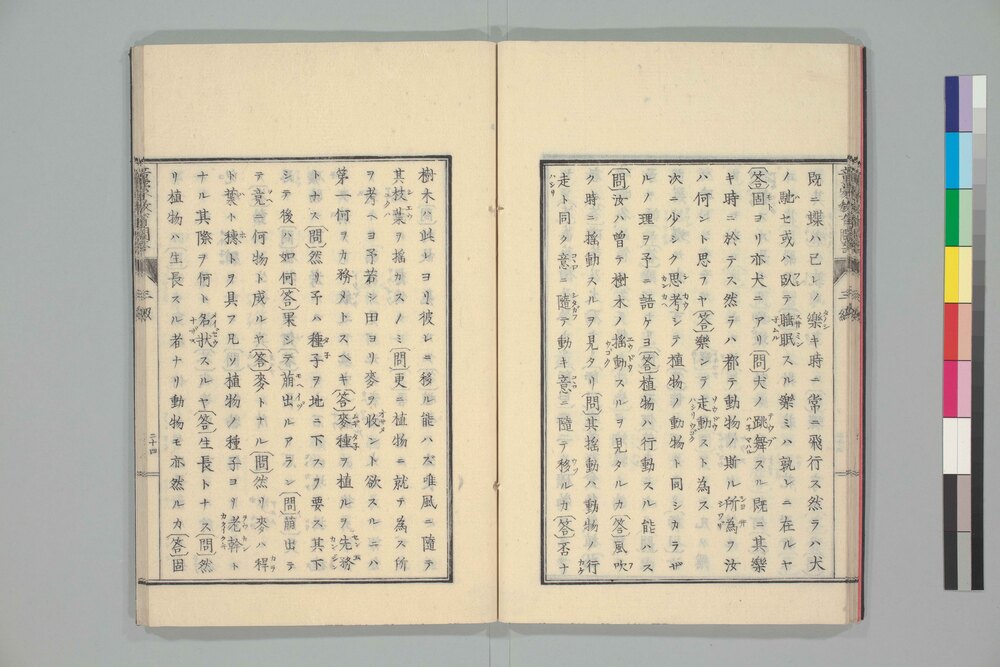 既ニ蝶ハ己レノ樂キ時ニ常ニ飛行ス然ラハ犬
ハ馳セ或ハ臥テ瞌眠スル樂ミハ孰レニ在ルヤ
〔答〕固ヨリ亦犬ニアリ〔問〕犬ノ跳舞スル既ニ其樂
キ時ニ於テス然ラハ都テ動物ノ斯ル所為ヲ汝
ハ何ント思フヤ〔答〕樂シテ走動スト為ス
次ニ少シク思考シテ植物ノ動物ト同シカラザ
ルノ理ヲ予ニ語ケヨ〔答〕植物ハ行動スル能ハス
〔問〕汝ハ曾テ樹木ノ搖動スルヲ見タルカ〔答〕風吹
ク時ニ搖動スルヲ見タリ〔問〕其搖動ハ動物ノ行
走ト同ク意ニ隨テ動キ意ニ隨テ移ルカ〔答〕否ナ
樹木ハ此レヨリ彼レニ移ル能ハズ唯風ニ隨テ
其枝葉ヲ搖カスノミ〔問〕更ニ植物ニ就テ為ス所
ヲ考ヘヨ予若シ田ヨリ麥ヲ收ント欲スルニハ
第一何ヲカ務メトスヘキ〔答〕麥種ヲ植ルヲ先務
トナス〔問〕然リ予ハ種子ヲ地ニ下スヲ要ス其下
シテ後ハ如何〔答〕果シテ萠出ルアラン〔問〕萠出テ
テ竟ニ何物ト成ルヤ〔答〕麥トナル〔問〕然リ麥ハ稈
ト葉ト穗トヲ具フ凡ソ植物ノ種子ヨリ老幹ト
ナル其際ヲ何ト名狀スルヤ〔答〕生長トナス〔問〕然
リ植物ハ生長スル者ナリ動物モ亦然ルカ〔答〕固
二十四